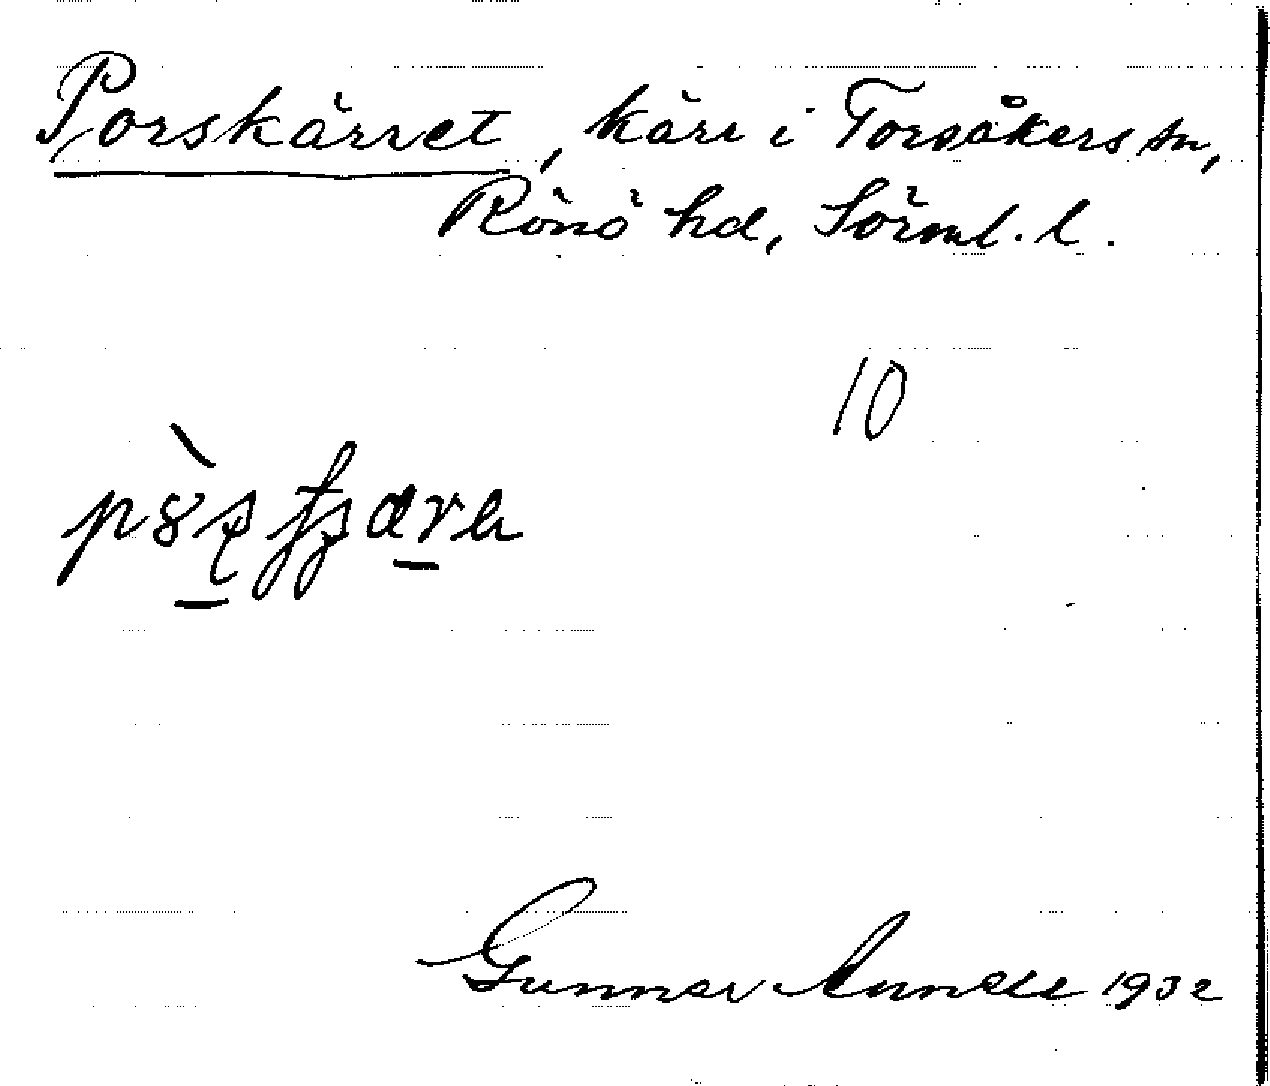 Porskärret, kärr i Torsåkers sn,
Rönö hd, Sörml. l.
10
Gunnar 1932